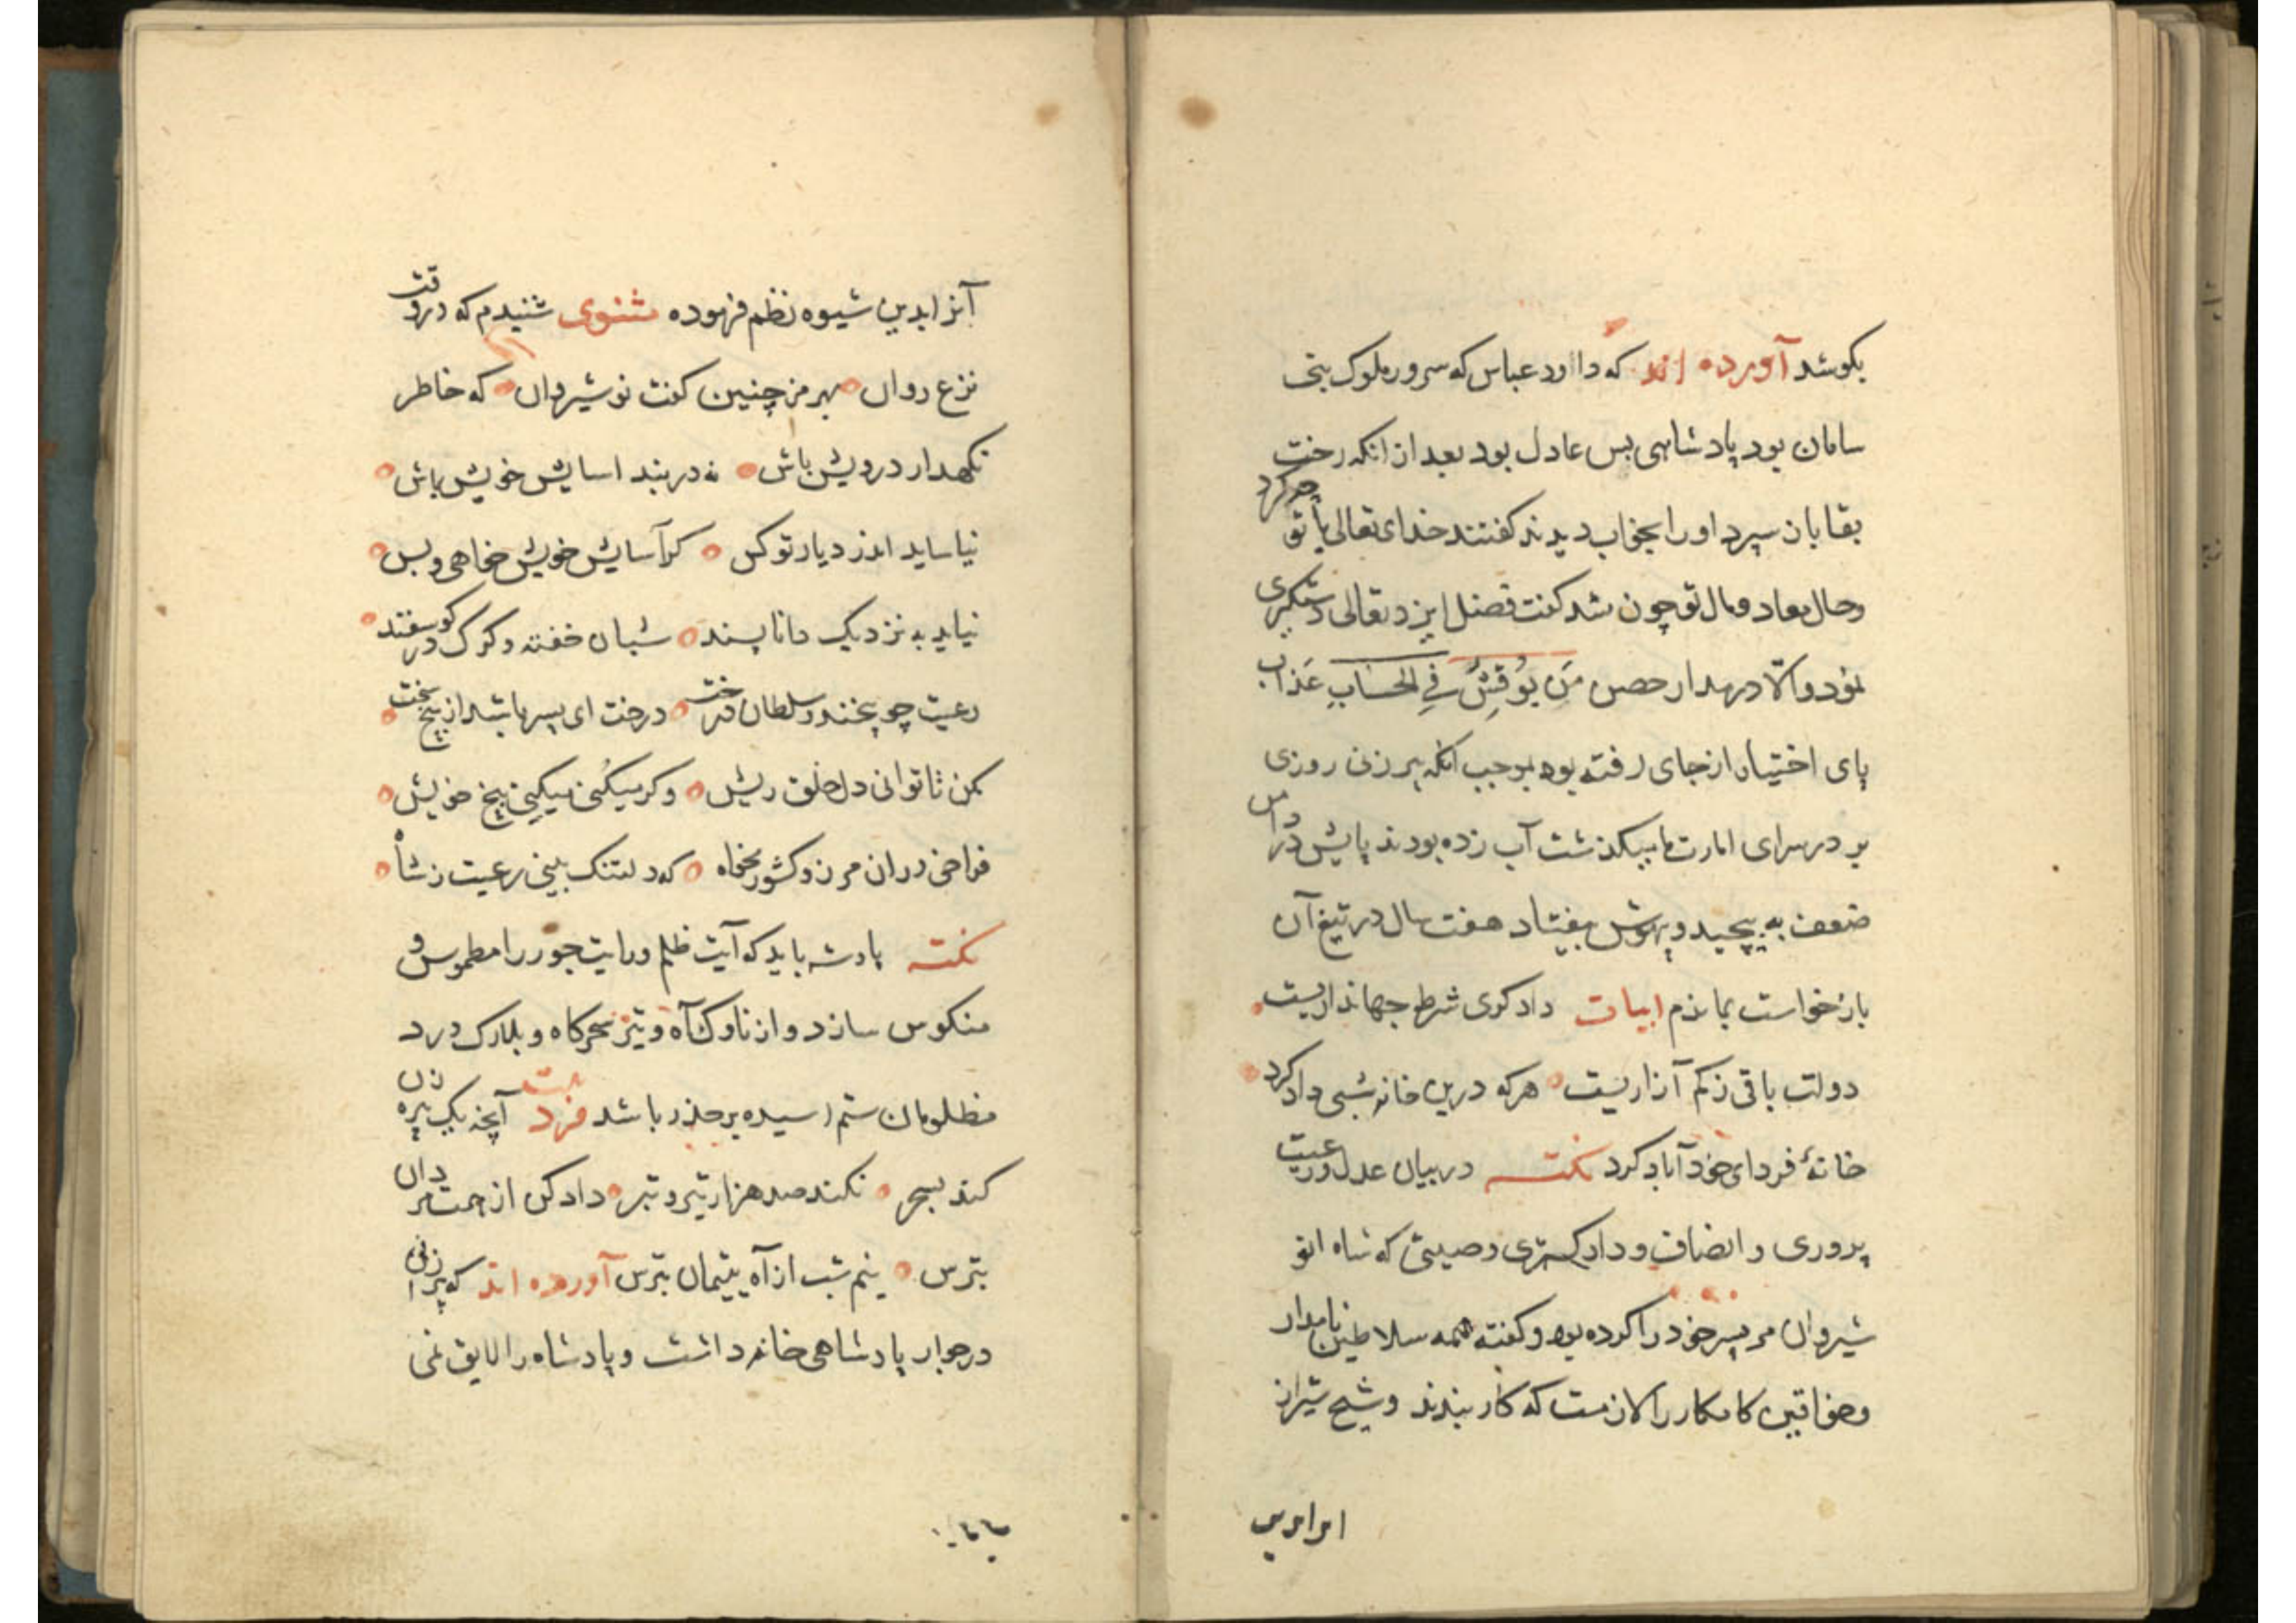 بکوشد آورده اند که داود عباس که سرور ملوک بنی
سامان بود پادشاهی بس عادل بود بعد از انکه رخت
بقا بان سپرد او را بخواب دیدند کفتند خدای تعالی با تو چه کرد
وحال معاد ومال تو چون شد کفت فضل ایزد تعالی دستکیری
نمود والّا در مدار حصن مَن نُوقِشَ فِی الحِسَابِ عَذاب
پای اختیار از جای رفته بود بموجب انکه پیر زنی روزی
بر در سرای امارت ما میکذشت آب زده بودند پایش در دامن
ضعف به پیچید و بیهوش بیفتاد هفت سال در تیغ آن
بازخواست بماندم ابیات داد کری شرط جهانداریست
دولت باقی ز کم آزاریست هر که درین خانه شبی داد کرد
خانهٔ فردای خود آباد کرد نکته در بیان عدل ورعیت
پروری و انصاف و داد کستری وصیتی که شاه انو
شیروان مر پسر خود را کرده بود و کفته همه سلاطین نامدار
وخواقین کامکار را لازمست که کار بندند و شیخ شیراز
آنرا بدین شیوه نظم فرموده مثنوی شنیدم که در وقت
نزع روان بهرمز چنین کفت نوشیروان که خاطر
نکهدار درویش باش نه در بند اسایش خویش باش
نیاساید اندر دیار تو کس کر آسایش خویش خواهی و بس
نیاید به نزدیک دانا پسند شبان خفته و کرک در کوسفند
رعیت چو بیخند و سلطان درخت درخت ای پسر باشد از بیخ سخت
مکن تا توانی دل خلق ریش وکر میکنی میکنی بیخ خویش
فراخی در ان مرز و کشور مخواه که دلتنک بینی رعیت ز شاه
نکته پادشه باید که آیت ظلم ورایت جور را مطموس و
منکوس سازد و از ناوک آه و تیر سحرکاه و بلارک درد
مظلومان ستم رسیده بر حذر باشد فرد آنچه یک پیره زن
کند بسحر نکند صد هزار تیر و تبر داد کن از همت مردان
بترس نیم شب از آه یتیمان بترس آورده اند که پیر زنی
در جوار پادشاهی خانه داشت و پادشاه را لایق نمی